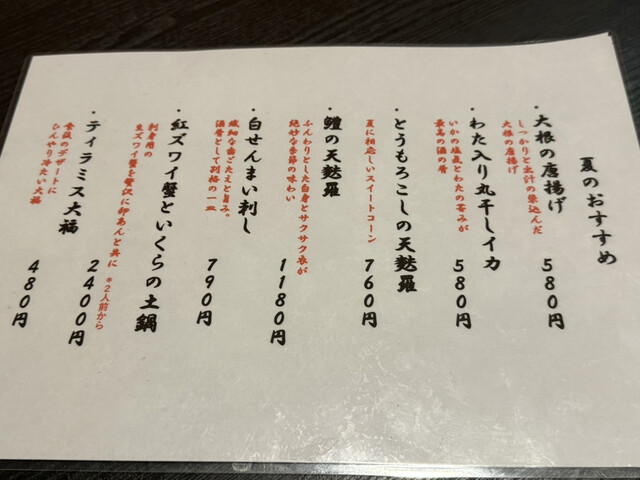 夏のおすすめ
・大根の唐揚げ
しっかりと出汁の染込んだ
大根の唐揚げ
580円
・わた入り丸干しイカ
いかの塩気とわたの苦みが
最高の酒の肴
580円
・とうもろこしの天麩羅
夏に相応しいスイートコーン
760円
・鱧の天麩羅
ふんわりとした白身とサクサク衣が
絶妙な季節の味わい
1180円
・白せんまい刺し
繊細な歯ごたえと旨み。
酒肴として別格の一皿
790円
・紅ズワイ蟹といくらの土鍋
刺身用の
生ズワイ蟹を贅沢に卵あんと共に
※2人前から
2400円
・ティラミス大福
食後のデザートに
ひんやり冷たい大福
480円